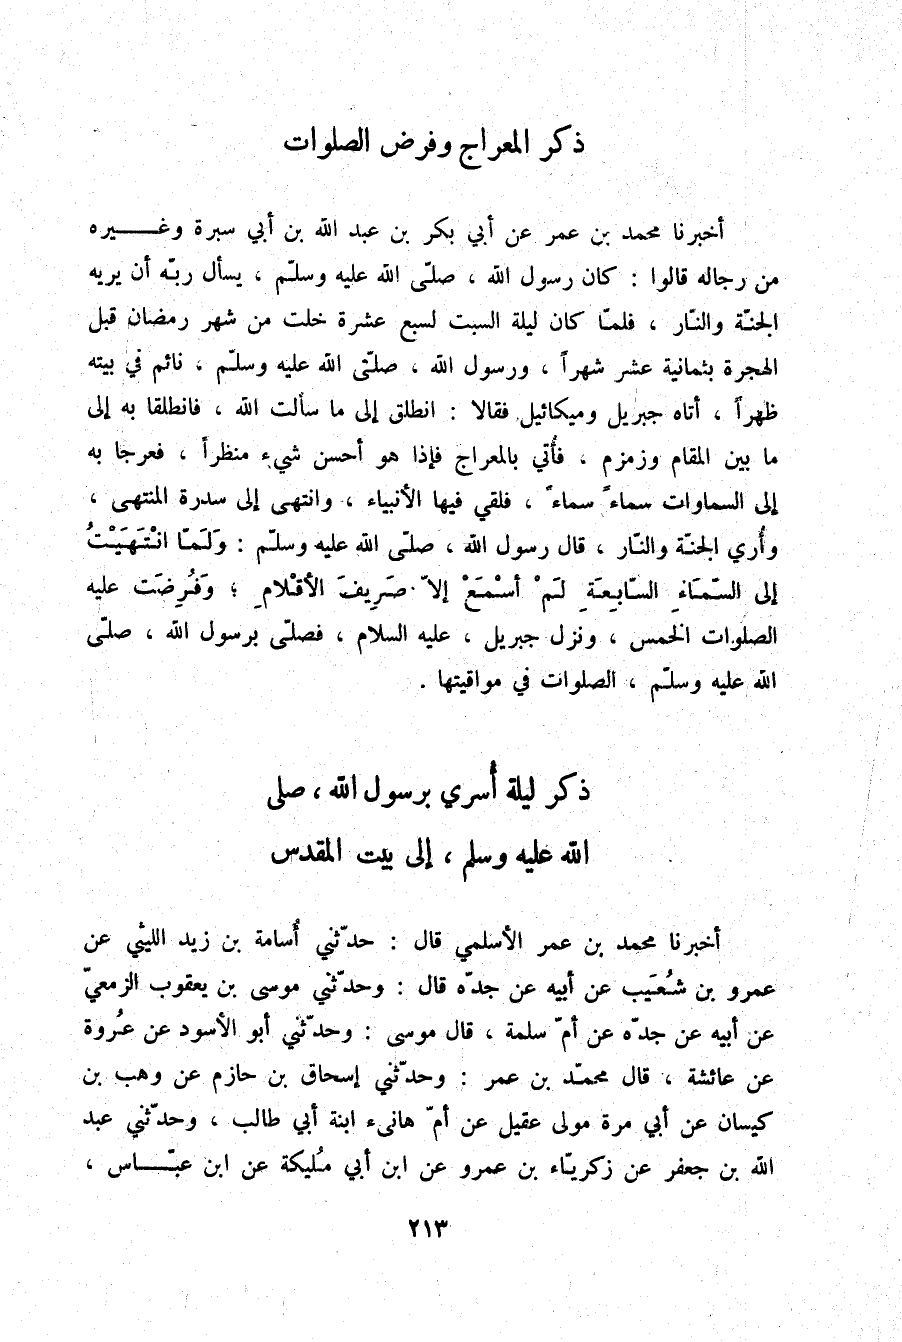 ذكر المعراج وفرض الصلوات
أخبرنا محمد بن عمر عن أبي بكر بن عبد الله بن أبي سبرة وغــــيره
من رجاله قالوا : كان رسول الله ، صلّى الله عليه وسلّم ، يسأل ربّه أن يريه
الجنّة والنّار ، فلمّا كان ليلة السبت لسبع عشرة خلت من شهر رمضان قبل
الهجرة بثمانية عشر شهراً ، ورسول الله ، صلّى الله عليه وسلّم ، نائم في بيته
ظهراً ، أتاه جبريل وميكائيل فقالا : انطلق إلى ما سألت الله ، فانطلقا به إلى
ما بين المقام وزمزم ، فأُتي بالمعراج فإذا هو أحسن شيء منظراً ، فعرجا به
إلى السماوات سماءً سماءً ، فلقي فيها الأنبياء ، وانتهى إلى سدرة المنتهى ،
وأُري الجنّة والنّار ، قال رسول الله ، صلّى الله عليه وسلّم : وَلَمّا انْتَهَيْتُ
إلى السّمَاءِ السّابِعَةِ لَمْ أسْمَعْ إلاّ صَرِيفَ الأقْلامِ ؛ وَفُرِضَت عليه
الصلوات الخمس ، ونزل جبريل ، عليه السلام ، فصلّى برسول الله ، صلّى
الله عليه وسلّم ، الصلوات في مواقيتها .
ذكر ليلة أُسري برسول الله ، صلى
الله عليه وسلم ، إلى بيت المقدس
أخبرنا محمد بن عمر الأسلمي قال : حدّثني أُسامة بن زيد الليثي عن
عمرو بن شُعَيب عن أبيه عن جدّه قال : وحدّثني موسى بن يعقوب الزمعيّ
عن أبيه عن جدّه عن أمّ سلمة ، قال موسى : وحدّثني أبو الأسود عن عُروة
عن عائشة ، قال محمّد بن عمر : وحدّثني إسحاق بن حازم عن وهب بن
كيسان عن أبي مرة مولى عقيل عن أمّ هانىء ابنة أبي طالب ، وحدّثني عبد
الله بن جعفر عن زكريّاء بن عمرو عن ابن أبي مُليكة عن ابن عبّــــاس ،
٢١٣